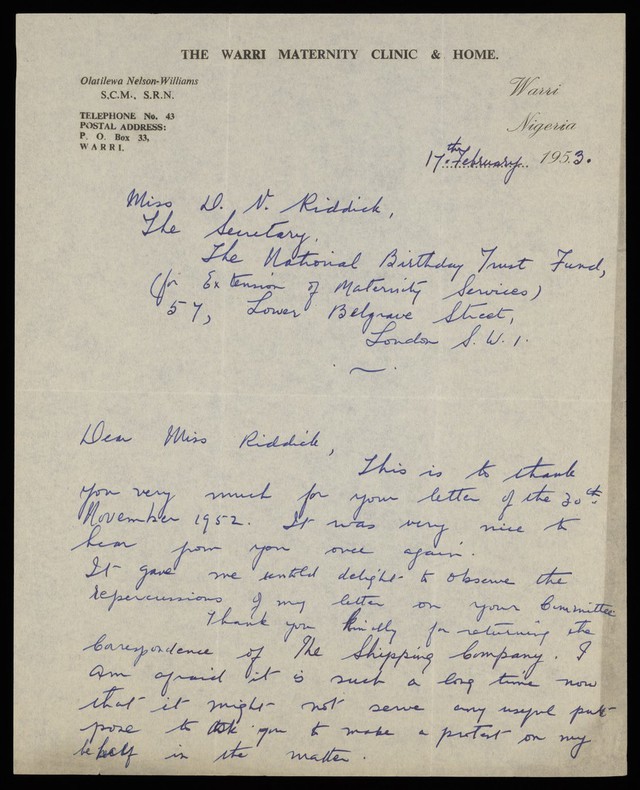 THE WARRI MATERNITY CLINIC & HOME.
Olatilewa Nelson-Williams
S.C.M., S.R.N.
TELEPHONE No. 43
POSTAL ADDRESS:
P. O. Box 33,
WARRI.
Warri
Nigeria
17th February 1953.
Miss D. V. Riddick,
The Secretary,
The National Birthday Trust Fund,
(for Extension of Maternity Services)
57, Lower Belgrave Street,
London S.W.1.
Dear Miss Riddick,
This is to thank
you very much for your letter of the 30th
November 1952. It was very nice to
hear from you once again.
It gave me untold delight to observe the
repercussions of my letter on your Committee
Thank you kindly for returning the
Correspondence of The Shipping Company. I
am afraid it is such a long time now
that it might not serve any useful pur-
pose to ask you to make a protest on my
behalf in the matter.